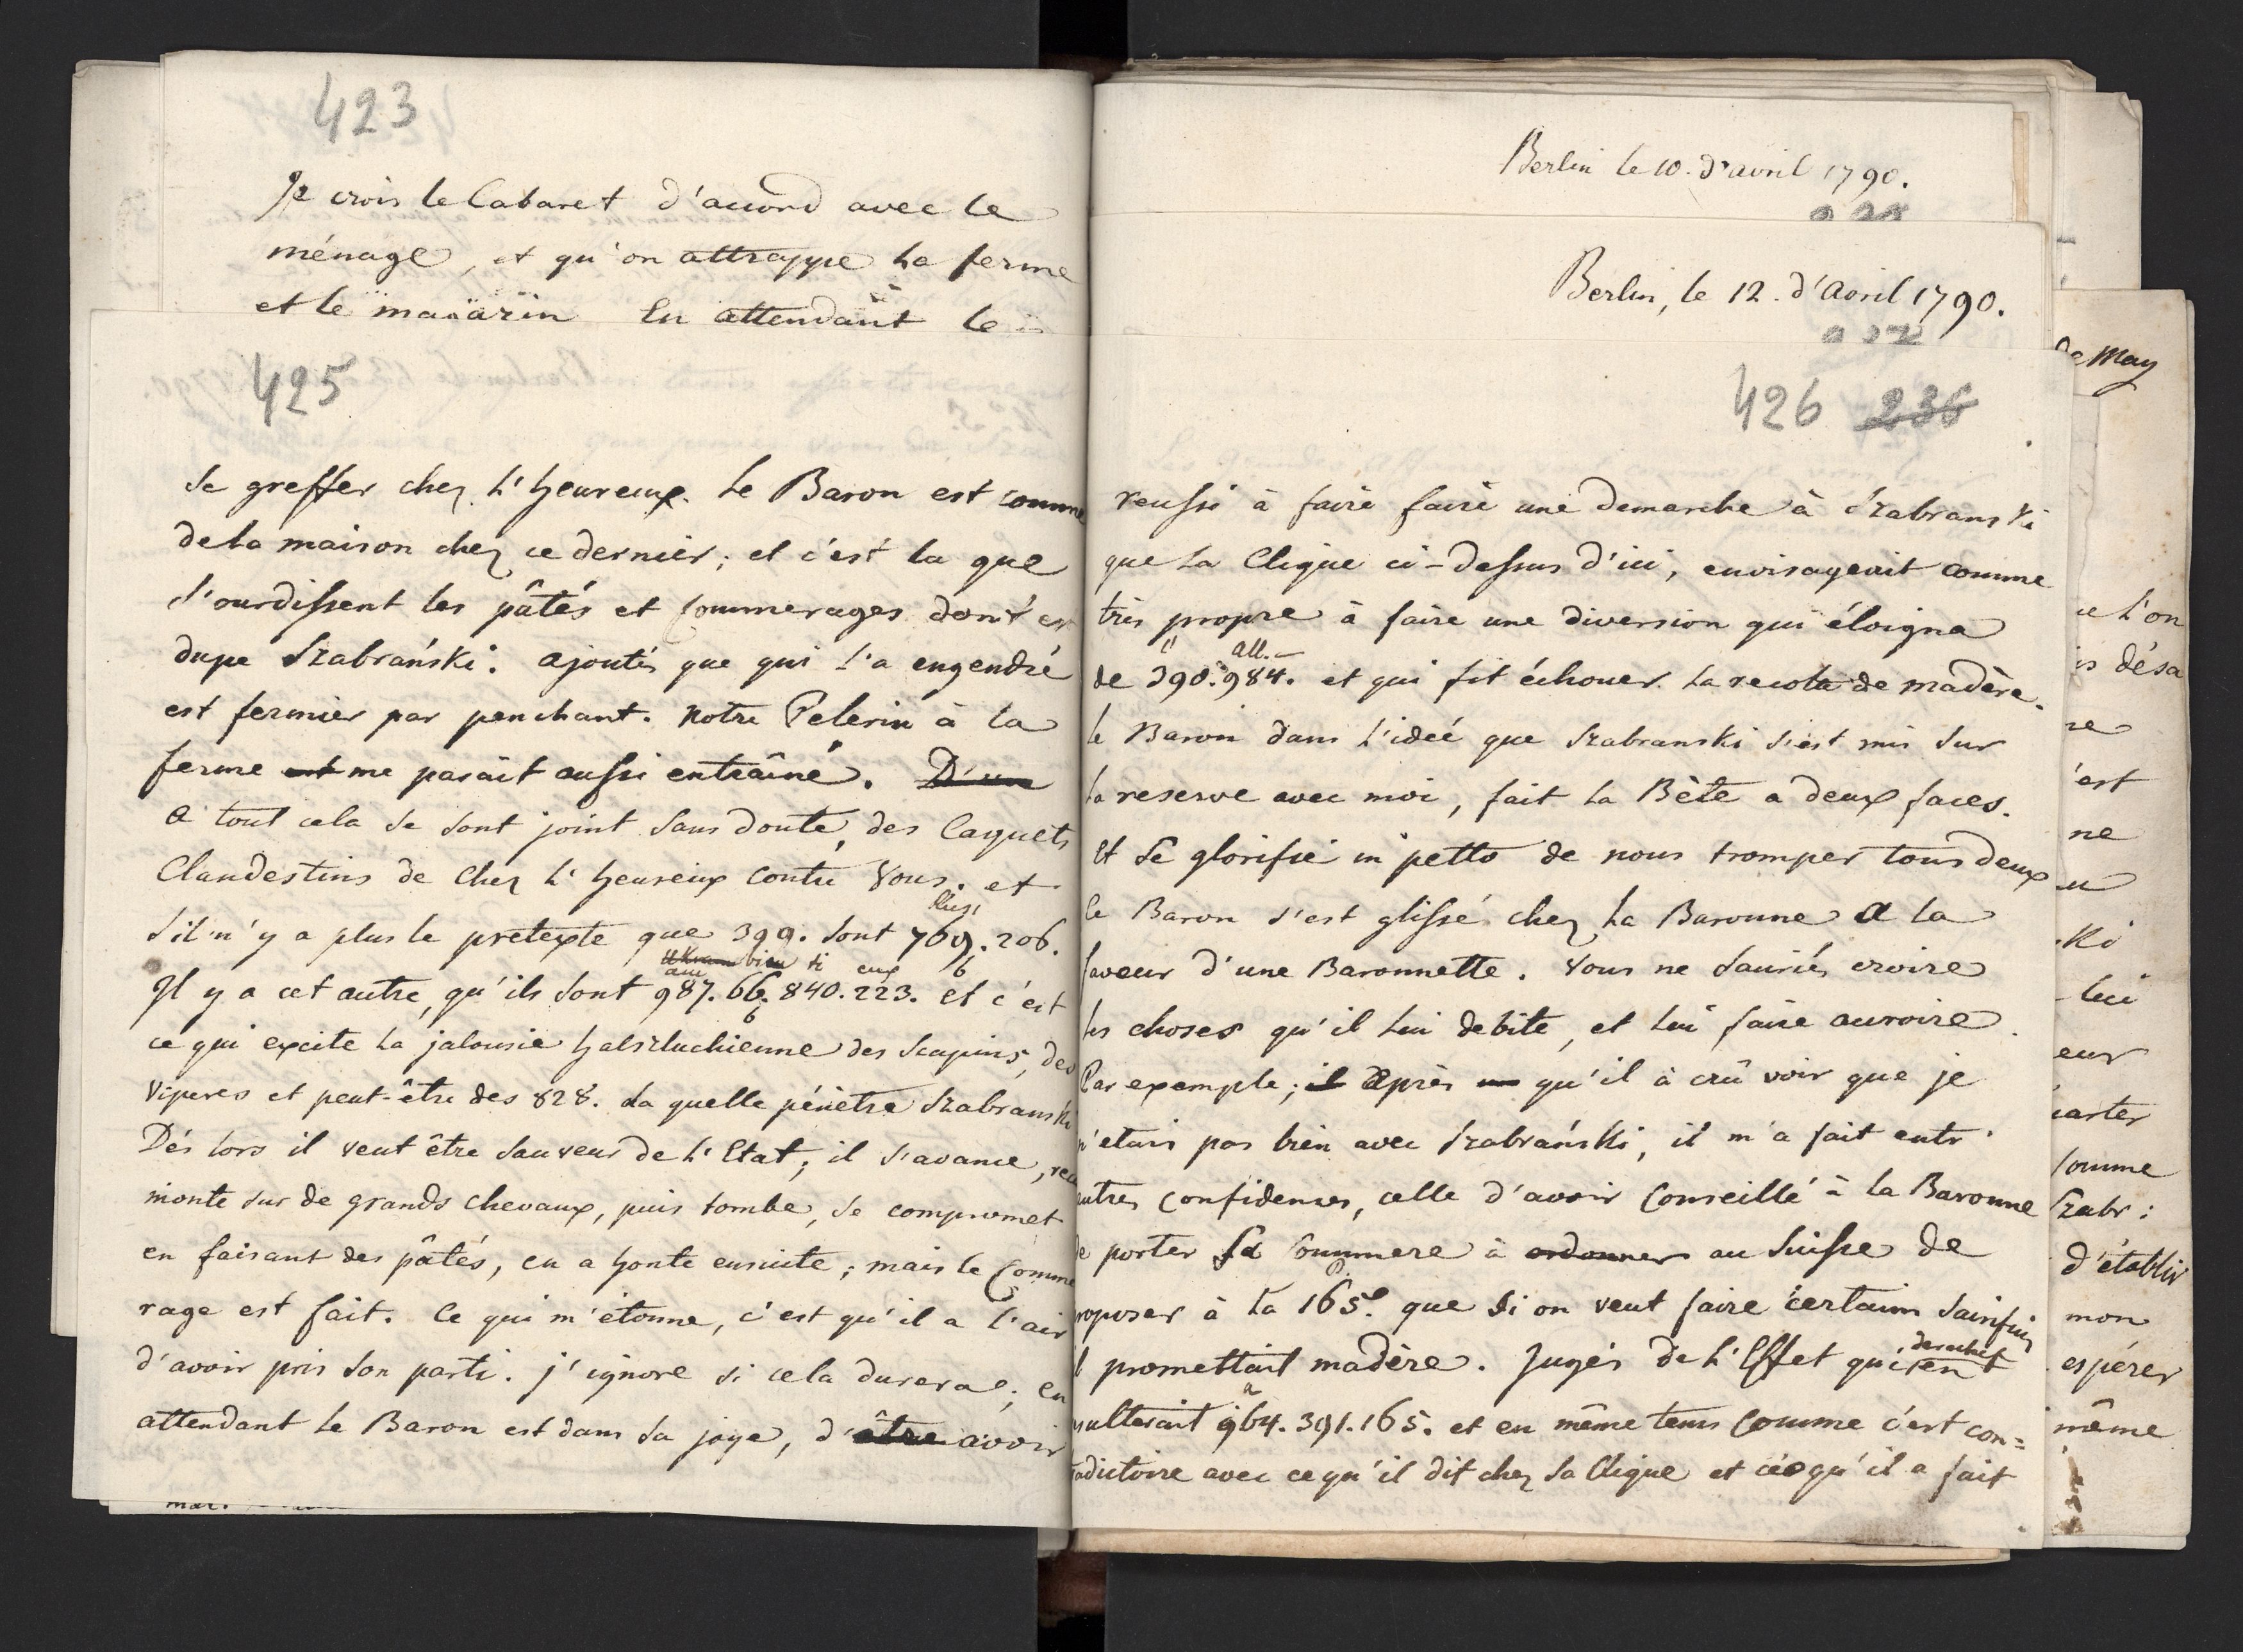 423
Je crois le Cabaret d'accord avec le
ménage, et qu'on attrappe la ferme
et le mazarin En attendant le
425
se greffer chez L'heureux. Le Baron est comme
de la maison chez ce dernier; et c'est la que
s'ourdissent les pâtés et commerages dont est
dupe Szabrański. ajoutés que qui l'a engendré
est fermier par penchant. Notre Pelerin à la
ferme me parait aussi entraîné. D'un
a tout cela se sont joint sans doute, des Caquets
Clandestins de chez L'heureux contre Vous. et
s'il n'y a plus le pretexte que 399. sont 769. 206.
bien si eux
Il y a cet autre, qu'ils sont 987. 66. 840. 223. et c'est
ce qui excite la jalousie halszluchienne des Scapins, des
Viperes et peut-être des 828. la quelle pénètre Szabranski
Dés lors il veut être sauveur de l'Etat; il s'avance,
monte sur de grands chevaux, puis tombe, se compromet
en faisant des pâtés, en a honte ensuite; mais le Comme
rage est fait. Ce qui m'étonne, c'est qu'il a l'air
d'avoir pris son parti. j'ignore si cela durera; en
attendant le Baron est dans sa joye, d'être avoir
Berlin le 10. d'avril 1790.
Berlin, le 12. d'Avril 1790.
426 236
reussi à faire faire une demarche à Szabranski
que la Clique ci-dessus d'ici, envisageait comme
très propre à faire une diversion qui éloigna
all.
de 390. 984. et qui fit échouer la recolte de madère.
le Baron dans l'idée que Szabranski s'est mis sur
la reserve avec moi, fait la Bête a deux faces.
et se glorifie in petto de nous tromper tous deux
le Baron s'est glissé chez la Baronne a la
faveur d'une Baronnette. Vous ne sauriés croire
les choses qu'il lui debite, et lui faire accroire.
Par exemple; il après qu'il à crû voir que je
n'etais pas bien avec Szabrański, il m'a fait entr'
autres confidences, celle d'avoir conseillé à la Baronne
de porter sa Commere à ordonner au Suisse de
proposer à la 165e. que si on veut faire certain Sainfoin
il promettait madère. Jugés de l'Effet qui en
derechef
resulterait 964. 391. 165. et en même tems comme c'est con=
tradictoire avec ce qu'il dit chez sa Clique et ce qu'il a fait
de May
ce l'on
désa
re
est
ne
ki
lui
eur
carter
comme
Szabr:
d'établir
mon
espérer
même